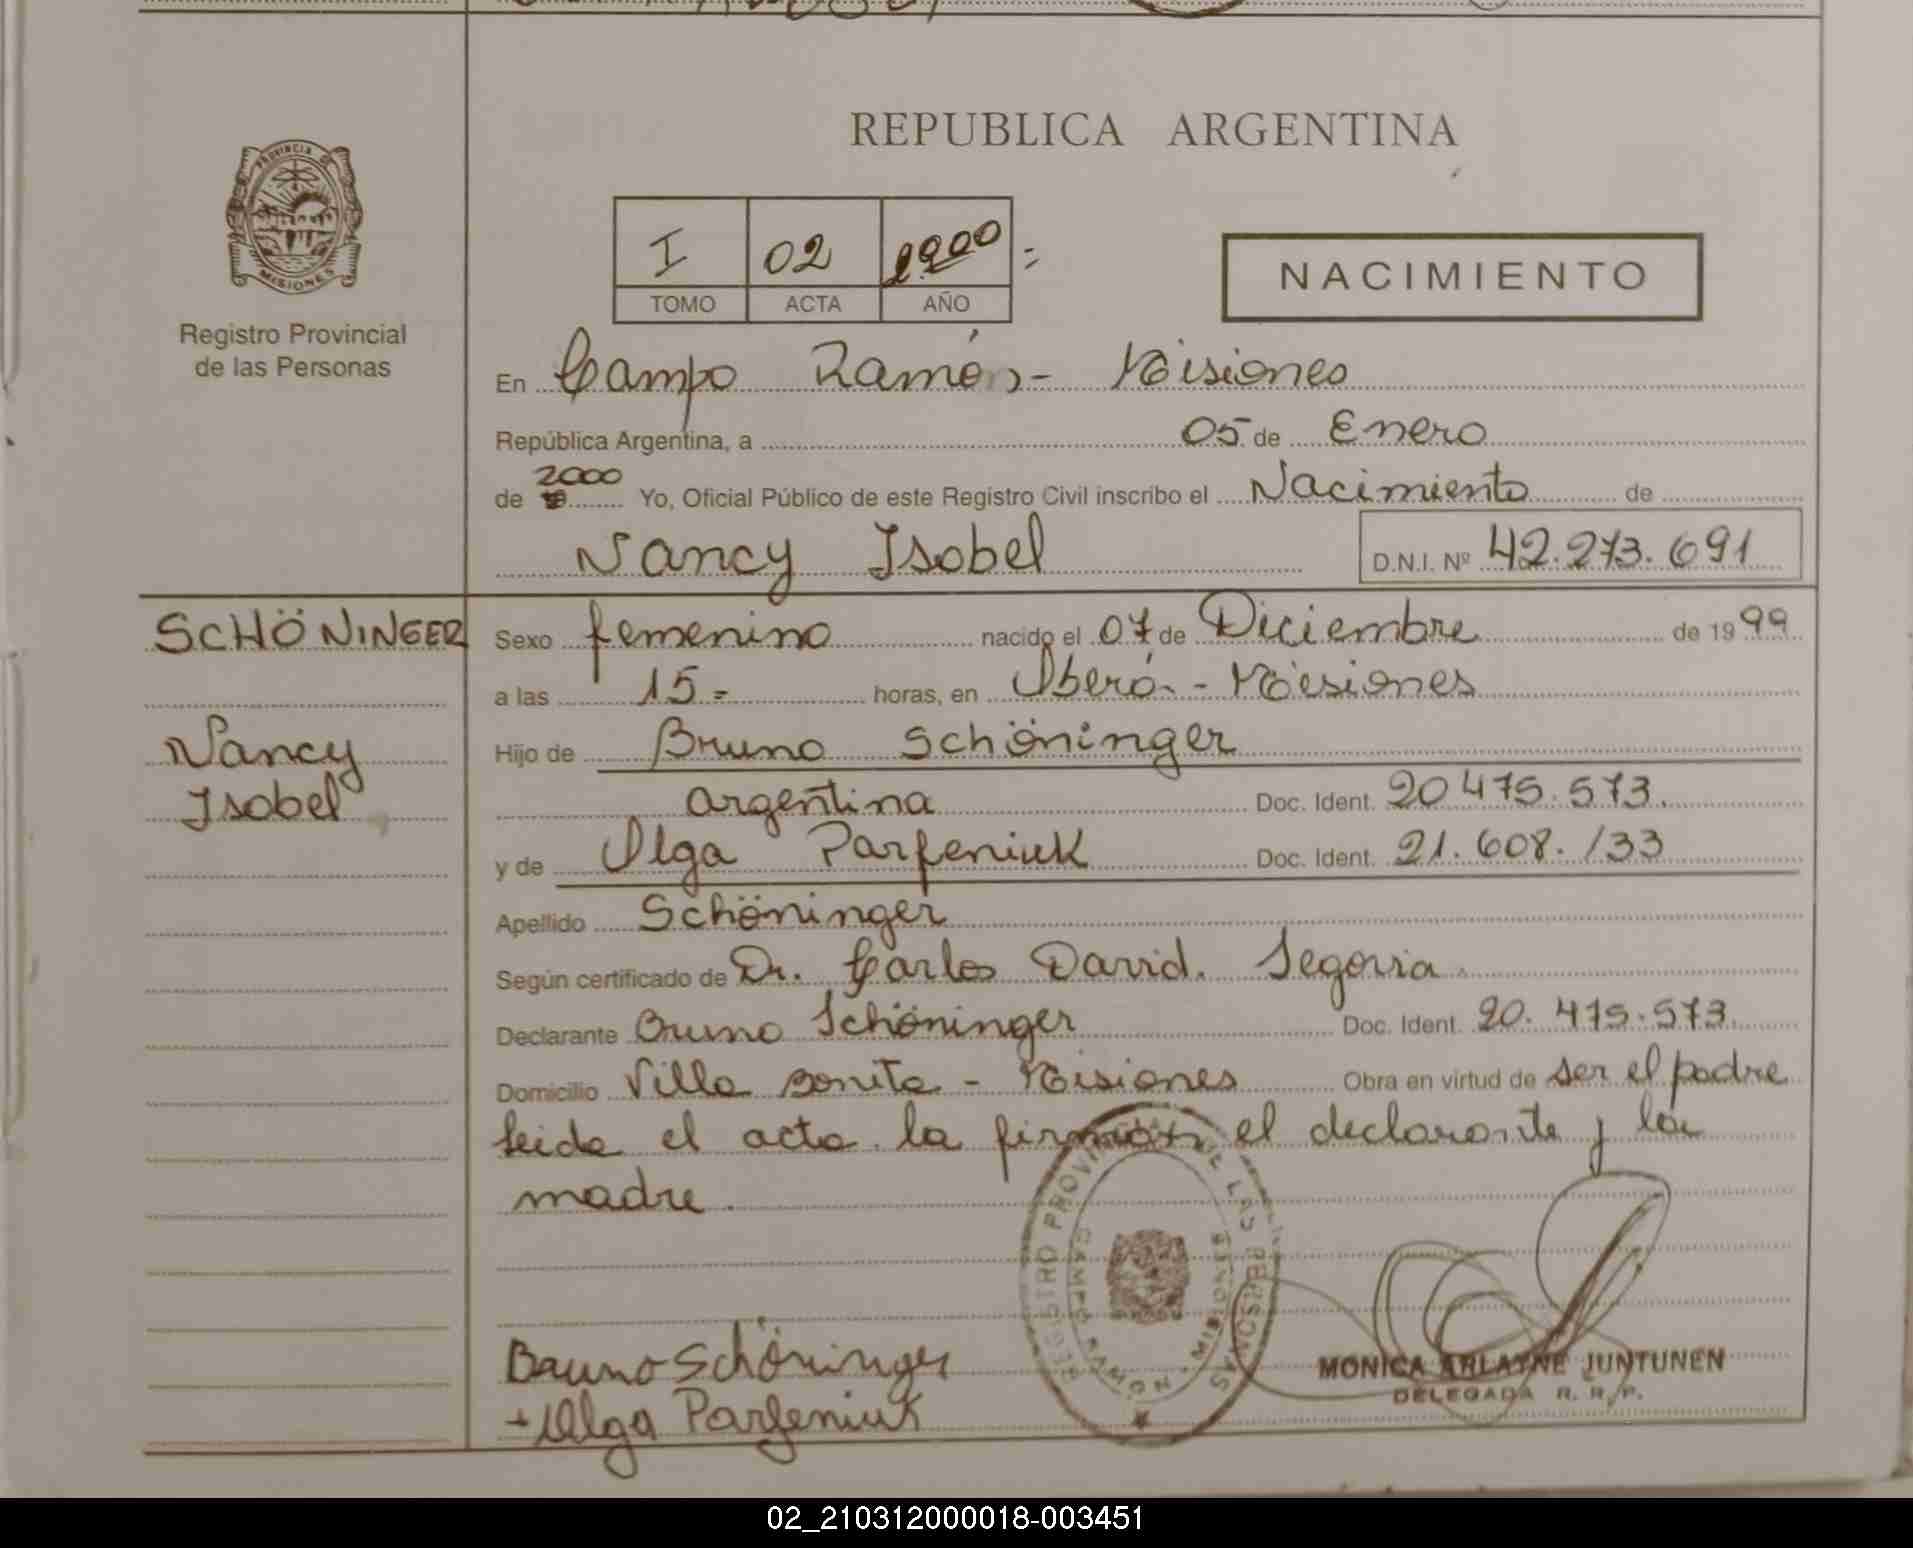 REPUBLICA ARGENTINA
PROVINCIA DE
MISIONES
Registro Provincial
de las Personas
I 02 2000 =
TOMO ACTA AÑO
NACIMIENTO
En Campo Ramón - Misiones
República Argentina, a 05 de Enero
de 2000 Yo, Oficial Público de este Registro Civil inscribo el Nacimiento de
Nancy Isobel D.N.I. Nº 42.273.691
SCHÖNINGER
Nancy
Isobel
Sexo femenino nacido el 07 de Diciembre de 19 99
a las 15 = horas, en Oberá - Misiones
Hijo de Bruno Schöninger
argentina Doc. Ident. 20 475.573.
y de Olga Parfeniuk Doc. Ident. 21.608.133
Apellido Schöninger
Según certificado de Dr. Carlos David. Segovia
Declarante Bruno Schöninger Doc. Ident. 20. 475.573
Domicilio Villa Bonita - Misiones Obra en virtud de ser el padre
leida el acta la firman el declarante y la
madre.
REGISTRO PROVINCIAL DE LAS PERSONAS
CAMPO RAMON - MISIONES
Bruno Schöninger
- Olga Parfeniuk
MONICA ARLAYNE JUNTUNEN
DELEGADA R. R. P.
02_210312000018-003451